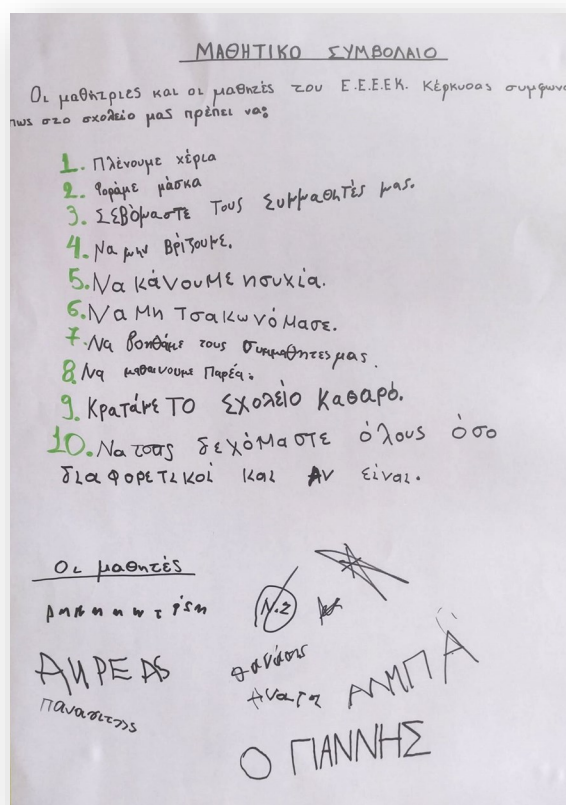 ΜΑΘΗΤΙΚΟ ΣΥΜΒΟΛΑΙΟ
Οι μαθήτριες και οι μαθητές του Ε.Ε.Ε.ΕΚ. Κέρκυρας συμφωνο
πως στο σχολείο μας πρέπει να:
1. Πλένουμε χέρια
2. Φοράμε μάσκα
3. ΣΕΒΌΜΑΣΤΕ ΤΟΥς Συμμαθητές μας.
4. Να μην Βρίζουμε.
5. Να κάνουΜε ησυχία.
6. Να Μη ΤσακωνόΜασε.
7. Να βοηθάμε τους συμμαθητες μας.
8. Να μαθαινουμε Παρέα.
9. Κρατάμε ΤΟ ΣΧολείο Καθαρό.
10. Να τους δεχόΜαστε όλους όσο
διαφορετικοί και ΑΝ είναι.
Οι μαθητές
Ν.Σ
ΑΝΡΕΑΣ
θανάσης
ΑΛΜΠΑ
Ο ΓΙΑΝΝΗΣ